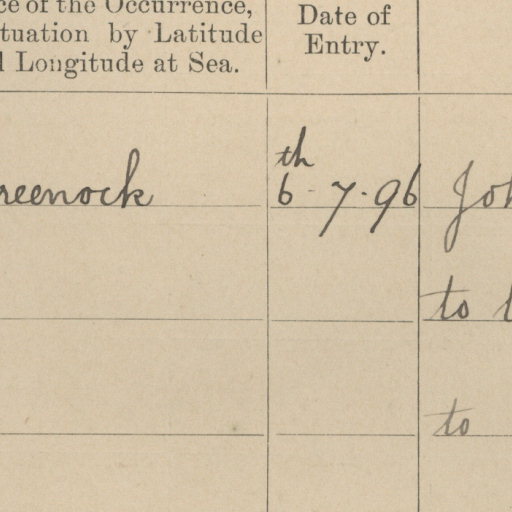 ce of the Occurrence,
tuation by Latitude
l Longitude at Sea.
Date of
Entry.
reenock
th
6-7-96
Joh
to l
to